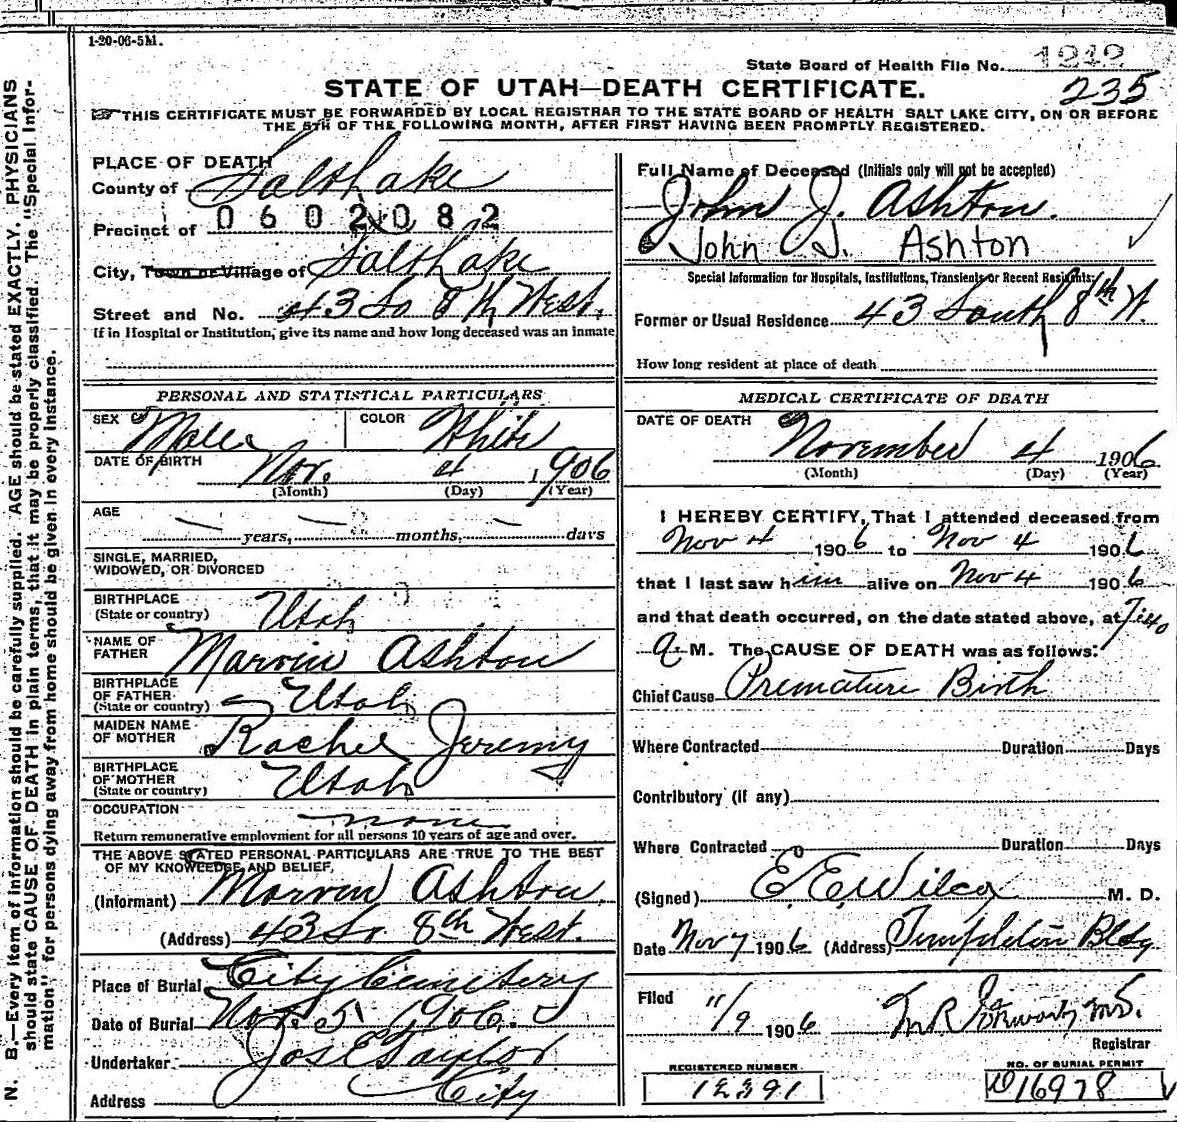 1-20-06-5M.
State Board of Health File No. 1242
235
STATE OF UTAH—DEATH CERTIFICATE.
THIS CERTIFICATE MUST BE FORWARDED BY LOCAL REGISTRAR TO THE STATE BOARD OF HEALTH SALT LAKE CITY, ON OR BEFORE
THE 5TH OF THE FOLLOWING MONTH, AFTER FIRST HAVING BEEN PROMPTLY REGISTERED.
N. B.—Every item of information should be carefully supplied. AGE should be stated EXACTLY. PHYSICIANS
should state CAUSE OF DEATH in plain terms, that it may be properly classified. The "Special Infor-
mation" for persons dying away from home should be given in every instance.
PLACE OF DEATH
County of Salt Lake
Precinct of 0602082
City, Town or Village of Salt Lake
Street and No. 43 So 8th West.
If in Hospital or Institution, give its name and how long deceased was an inmate
PERSONAL AND STATISTICAL PARTICULARS
SEX Male COLOR White
DATE OF BIRTH Nov. 4 1906
(Month) (Day) (Year)
AGE
— years, — months, — days
SINGLE, MARRIED,
WIDOWED, OR DIVORCED
BIRTHPLACE
(State or country) Utah
NAME OF
FATHER Marvin Ashton
BIRTHPLACE
OF FATHER
(State or country) Utah
MAIDEN NAME
OF MOTHER Rachel Jeremy
BIRTHPLACE
OF MOTHER
(State or country) Utah
OCCUPATION none
Return remunerative employment for all persons 10 years of age and over.
THE ABOVE STATED PERSONAL PARTICULARS ARE TRUE TO THE BEST
OF MY KNOWLEDGE AND BELIEF,
(Informant) Marvin Ashton,
(Address) 43 So 8th West.
Place of Burial City Cemetery
Date of Burial Nov. 5 1906.
Undertaker Jos E Taylor
Address City
Full Name of Deceased (Initials only will not be accepted)
John J. Ashton.
John J. Ashton
Special Information for Hospitals, Institutions, Transients or Recent Residents:
Former or Usual Residence 43 South 8th W.
How long resident at place of death
MEDICAL CERTIFICATE OF DEATH
DATE OF DEATH
November 4 1906
(Month) (Day) (Year)
I HEREBY CERTIFY, That I attended deceased from
Nov 4 1906 to Nov 4 1906
that I last saw him alive on Nov 4 1906
and that death occurred, on the date stated above, at 7:40
a M. The CAUSE OF DEATH was as follows:
Chief Cause Premature Birth
Where Contracted Duration Days
Contributory (if any)
Where Contracted Duration Days
(Signed) E. E. Wilcox M. D.
Date Nov 7 1906 (Address) Templeton Bldg
Filed 11/9 1906
Registrar
REGISTERED NUMBER
12391
NO. OF BURIAL PERMIT
D16978